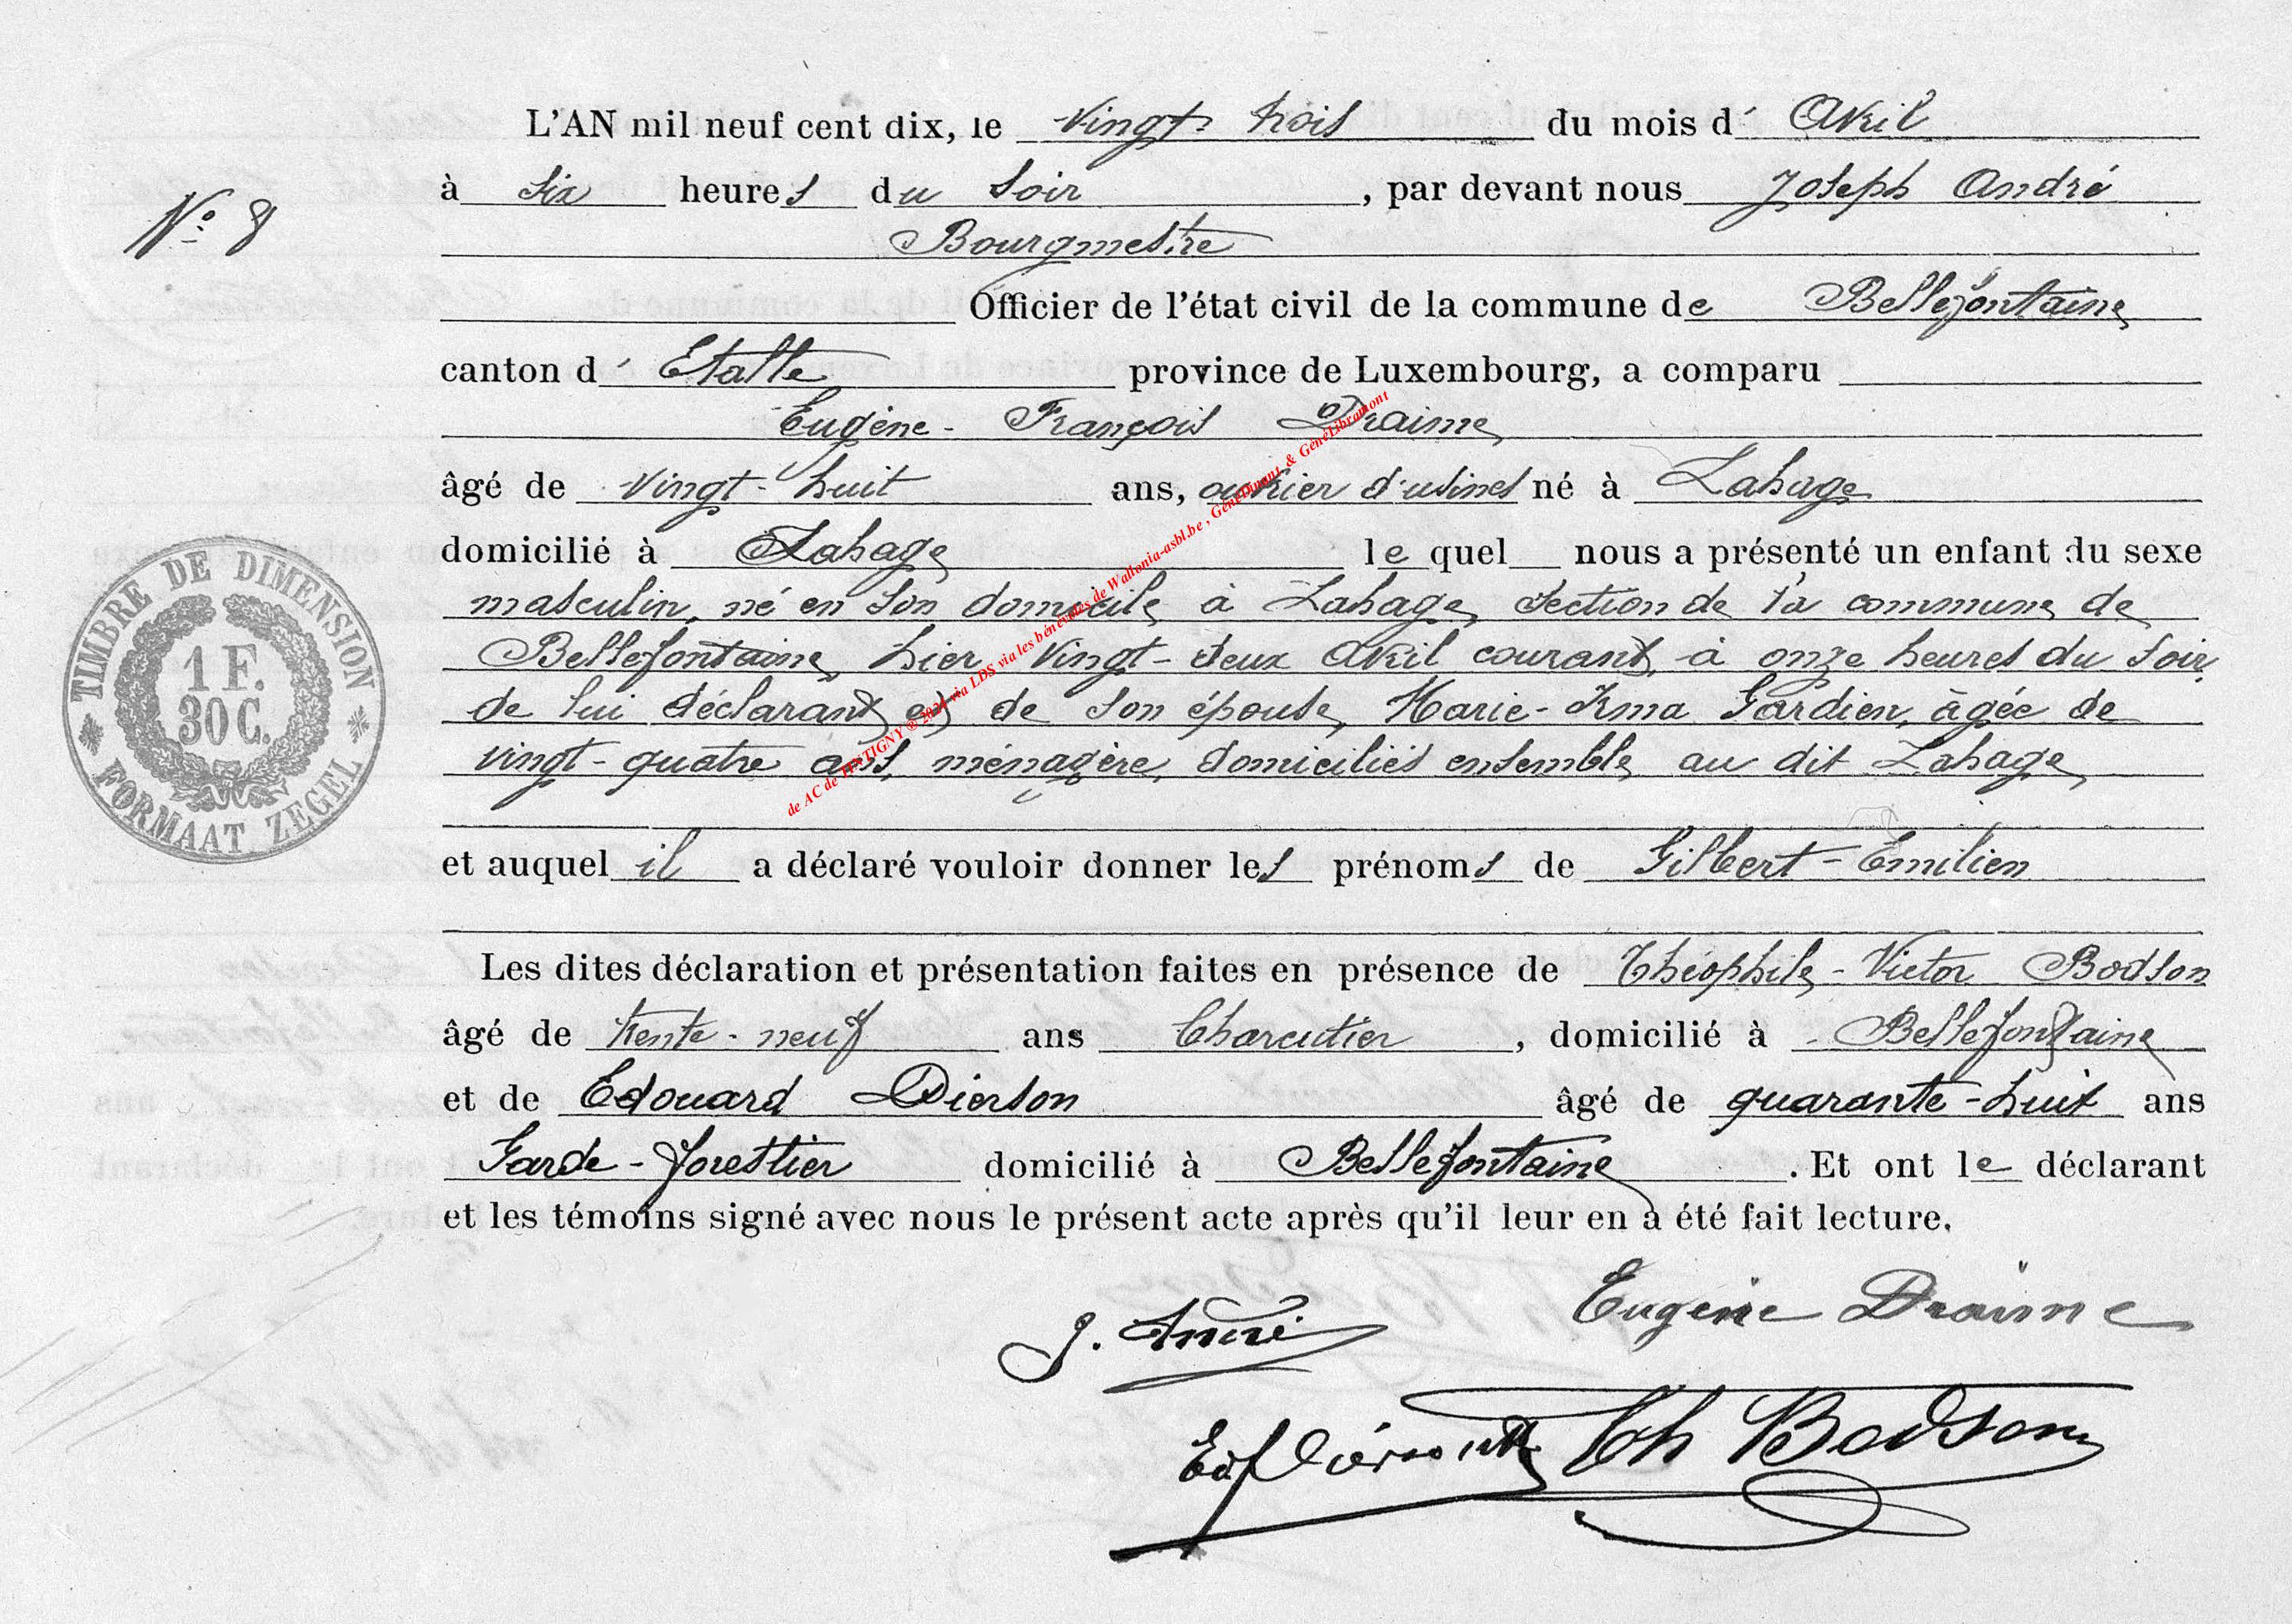 L'AN mil neuf cent dix, le vingt-trois du mois d'Avril
à six heures du soir, par devant nous Joseph André
N° 8
Bourgmestre
Officier de l'état civil de la commune de Bellefontaine
canton d'Etalle province de Luxembourg, a comparu
Eugène-François Draime
âgé de vingt-huit ans, ouvrier d'usines né à Lahage
domicilié à Lahage lequel nous a présenté un enfant du sexe
masculin, né en son domicile à Lahage, section de la commune de
Bellefontaine, hier vingt-deux avril courant, à onze heures du soir,
de lui déclarant et de son épouse, Marie-Irma Gardien, âgée de
vingt-quatre ans, ménagère, domiciliés ensemble au dit Lahage
et auquel il a déclaré vouloir donner les prénoms de Gilbert-Emilien
Les dites déclaration et présentation faites en présence de Théophile-Victor Bodson
âgé de trente-neuf ans Charcutier, domicilié à Bellefontaine
et de Edouard Dierson âgé de quarante-huit ans
Garde-forestier domicilié à Bellefontaine. Et ont le déclarant
et les témoins signé avec nous le présent acte après qu'il leur en a été fait lecture.
Eugène Draime
J. André
Th Bodson
TIMBRE DE DIMENSION
1 F.
30 C.
FORMAAT ZEGEL
de AC de TINTIGNY ® 2024 via LDS via les bénévoles de Wallonia-asbl.be, GénéDinant, & GénéLibramont